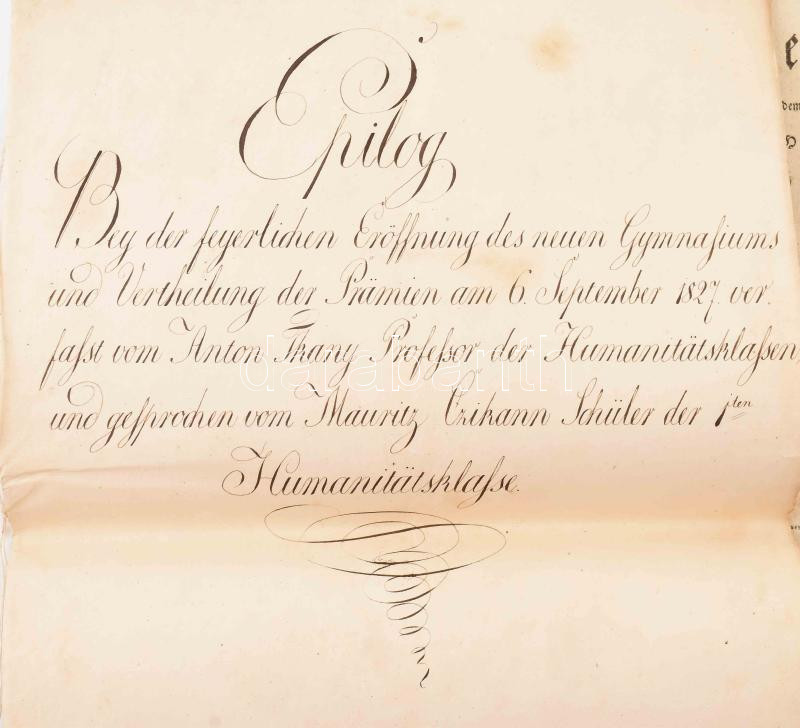 Epilog
Bey der feyerlichen Eröffnung des neuen Gymnasiums
und Vertheilung der Prämien am 6. September 1827. ver.
fasst vom Anton Tkany Professor der Humanitätsklassen,
und gesprochen vom Mauritz Czikann Schüler der 1ten
Humanitätsklasse.
darabanth
dem